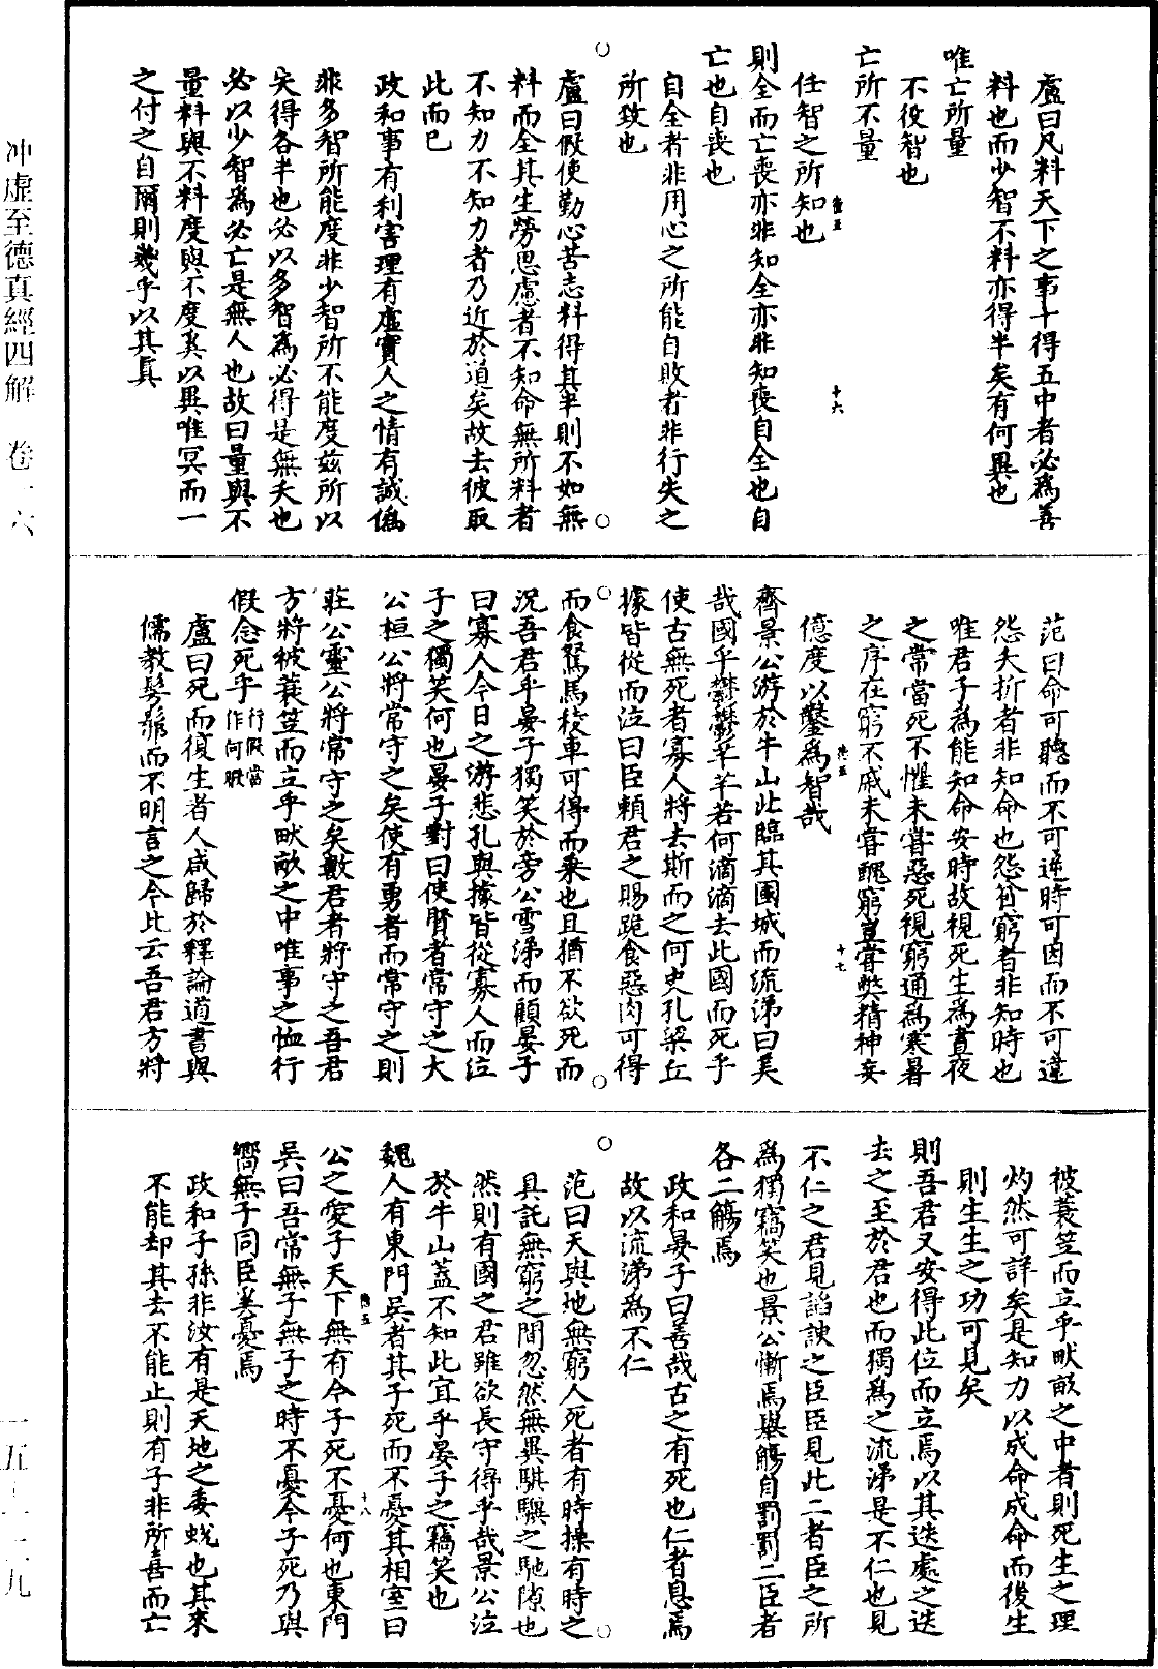 盧曰凡料天下之事十得五中者必為善
料也而少智不料亦得半矣有何異也
唯亡所量
不役智也
亡所不量
任智之所知也
則全而亡喪亦非知全亦非知喪自全也自
亡也自喪也
自全者非用心之所能自敗者非行失之
所致也
盧曰假使勤心苦志料得其半則不如無
料而全其生勞思慮者不知命無所料者
不知力不知力者乃近於道矣故去彼取
此而已
政和事有利害理有虛實人之情有誠偽
非多智所能度非少智所不能度茲所以
失得各半也必以多智為必得是無天也
必以少智為必亡是無人也故曰量與不
量料與不料度與不度奚以異唯冥而一
之付之自爾則幾乎以其真
范曰命可聽而不可逆時可因而不可違
怨夭折者非知命也怨貧窮者非知時也
唯君子為能知命安時故視死生為晝夜
之常當死不懼未嘗惡死視窮通為寒暑
之序在窮不戚未嘗醜窮豈嘗弊精神妄
億度以鑿為智哉
齊景公游於牛山北臨其國城而流涕曰美
哉國乎鬱鬱芊芊若何滴滴去此國而死乎
使古無死者寡人將去斯而之何史孔梁丘
據皆從而泣曰臣賴君之賜跪食惡肉可得
而食駑馬棱車可得而乘也且猶不欲死而
況吾君乎晏子獨笑於旁公雪涕而顧晏子
曰寡人今日之游悲孔與據皆從寡人而泣
子之獨笑何也晏子對曰使賢者常守之大
公桓公將常守之矣使有勇者而常守之則
莊公靈公將常守之矣數君者將守之吾君
方將被蓑笠而立乎畎畝之中唯事之恤行
假念死乎行假當作何暇
盧曰死而復生者人咸歸於釋論道書與
儒教髣髴而不明言之今此云吾君方將
被蓑笠而立乎畎畝之中者則死生之理
灼然可詳矣是知力以成命成命而後生
則生生之功可見矣
則吾君又安得此位而立焉以其迭處之迭
去之至於君也而獨為之流涕是不仁也見
不仁之君見諂諛之臣臣見此二者臣之所
為獨竊笑也景公慚焉舉觴自罰罰二臣者
各二觴焉
政和晏子曰善哉古之有死也仁者息焉
故以流涕為不仁
范曰天與地無窮人死者有時操有時之
具託無窮之間忽然無異騏驥之馳隙也
然則有國之君雖欲長守得乎哉景公泣
於牛山蓋不知此宜乎晏子之竊笑也
魏人有東門吳者其子死而不憂其相室曰
公之愛子天下無有今子死不憂何也東門
吳曰吾常無子無子之時不憂今子死乃與
嚮無子同臣奚憂焉
政和子孫非汝有是天地之委蛻也其來
不能却其去不能止則有子非所喜而亡
十六
十七
十八
冲虛至德真經四解 卷一六
一五—一一九